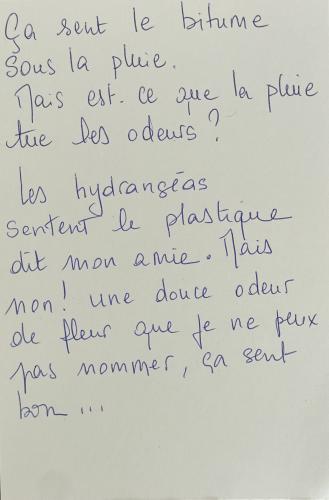 Ça sent le bitume
sous la pluie.
Mais est-ce que la pluie
tue les odeurs ?
Les hydrangéas
sentent le plastique
dit mon amie. Mais
non ! une douce odeur
de fleur que je ne peux
pas nommer, ça sent
bon ...